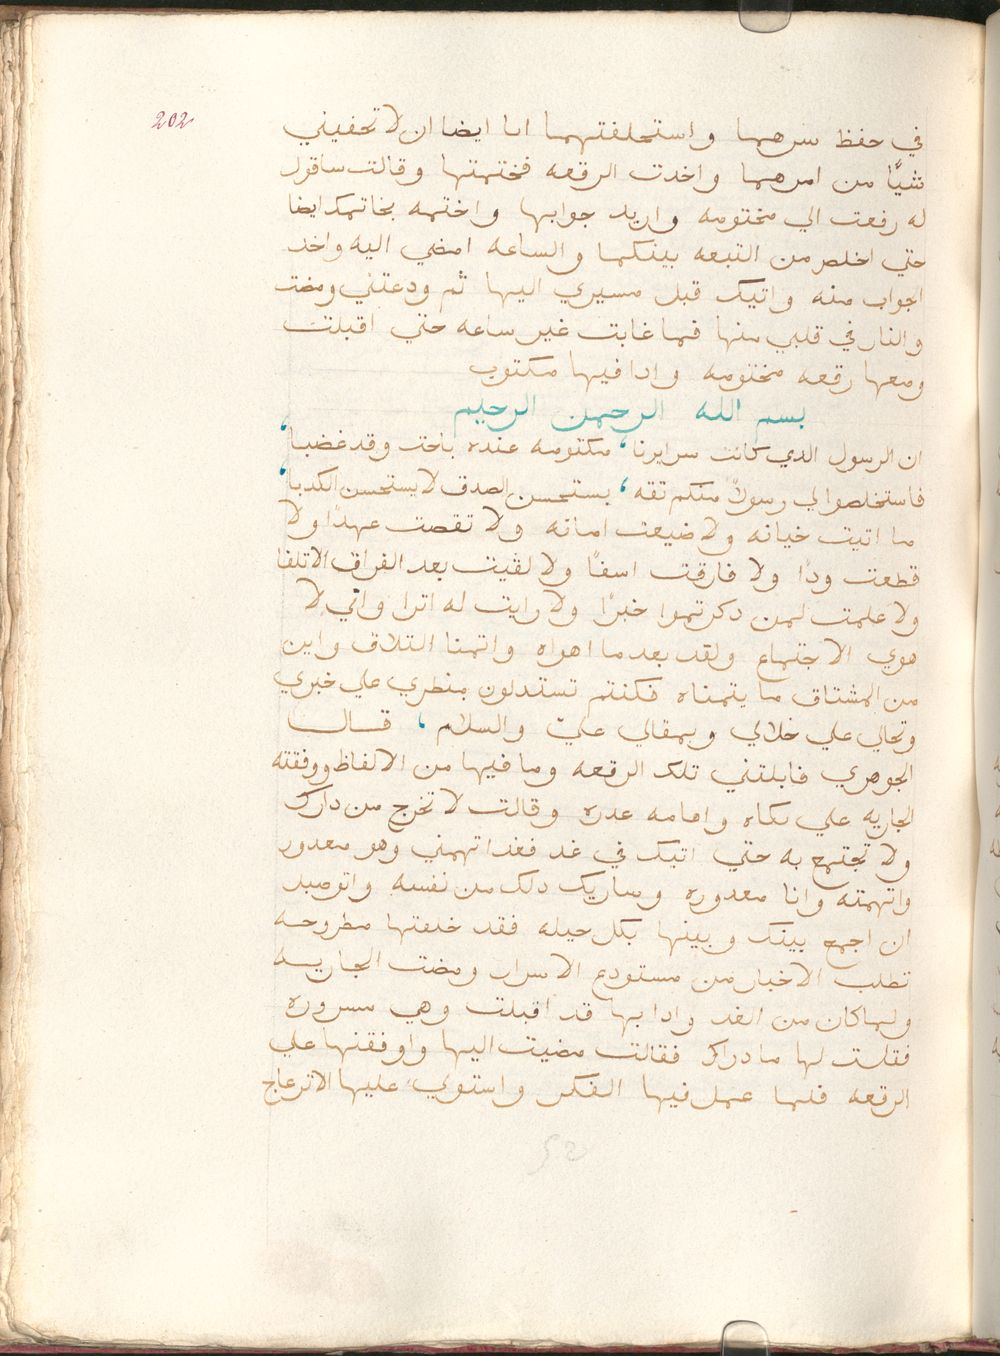 202
في حفظ سرهما واستحلفتهما انا ايضا ان لا تخفيني
شيًّا من امرهما واخدت الرقعه فختمتها وقالت ساقول
له رفعت الي مختومه واريد جوابها واختمه بخاتمك ايضا
حتي اخلص من التبعه بينكما والساعه امضي اليه واخد
الجواب منه واتيك قبل مسيري اليها ثم ودعتني ومضت
والنار في قلبي منها فما غابت غير ساعه حتي اقبلت
ومعها رقعه مختومه وادا فيها مكتوب
بسم الله الرحمن الرحيم
ان الرسول الدي كانت سرايرنا، مكتومه عنده باحت وقد غضبا،
فاستخلصوا لي رسولًا منكم ثقه، يستحسن الصدق لا يستحسن الكدبا،
ما اتيت خيانه ولا ضيعت امانه ولا نقصت عهدًا ولا
قطعت ودًا ولا فارقت اسفًا ولا لقيت بعد الفراق الا تلفا
ولا علمت لمن دكرتموا خبرًا ولا رايت له اترا واني لا
هوي الاجتماع ولقد بعد ما اهواه واتمنا التلاق واين
من المشتاق ما يتمناه فكنتم تستدلون بمنطري علي خبري
وبحالي علي خلالي وبمقالي عليّ والسلام، قال
الجوهري فابلتني تلك الرقعه وما فيها من الالفاظ ووفقته
الجاريه علي بكاه واقامه عدره وقالت لا تخرج من دارك
ولا تجتمع به حتي اتيك في غد فقد اتهمني وهو معدور
واتهمته وانا معدوره وساريك دلك من نفسه واتوصل
ان اجمع بينك وبينها بكل حيله فقد خلفتها مطروحه
تطلب الاخبار من مستودع الاسرار ومضت الجاريه
ولما كان من الغد وادا بها قد اقبلت وهي مسروره
فقلت لها ما دراك فقالت مضيت اليها واوفقتها علي
الرقعه فلما عمل فيها الفكر واستوي عليها الانزعاج